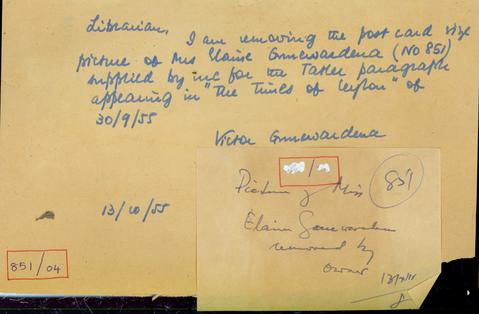 Librarian,
I am removing the post card size
picture of Mrs Elaine Gunewardena (No 851)
supplied by me for the Tatler paragraph
appearing in "The Times of Ceylon" of
30/9/55
Victor Gunewardena
13/10/55
851/04
851
Picture of Miss
Elaine Gunewardena
removed by
owner